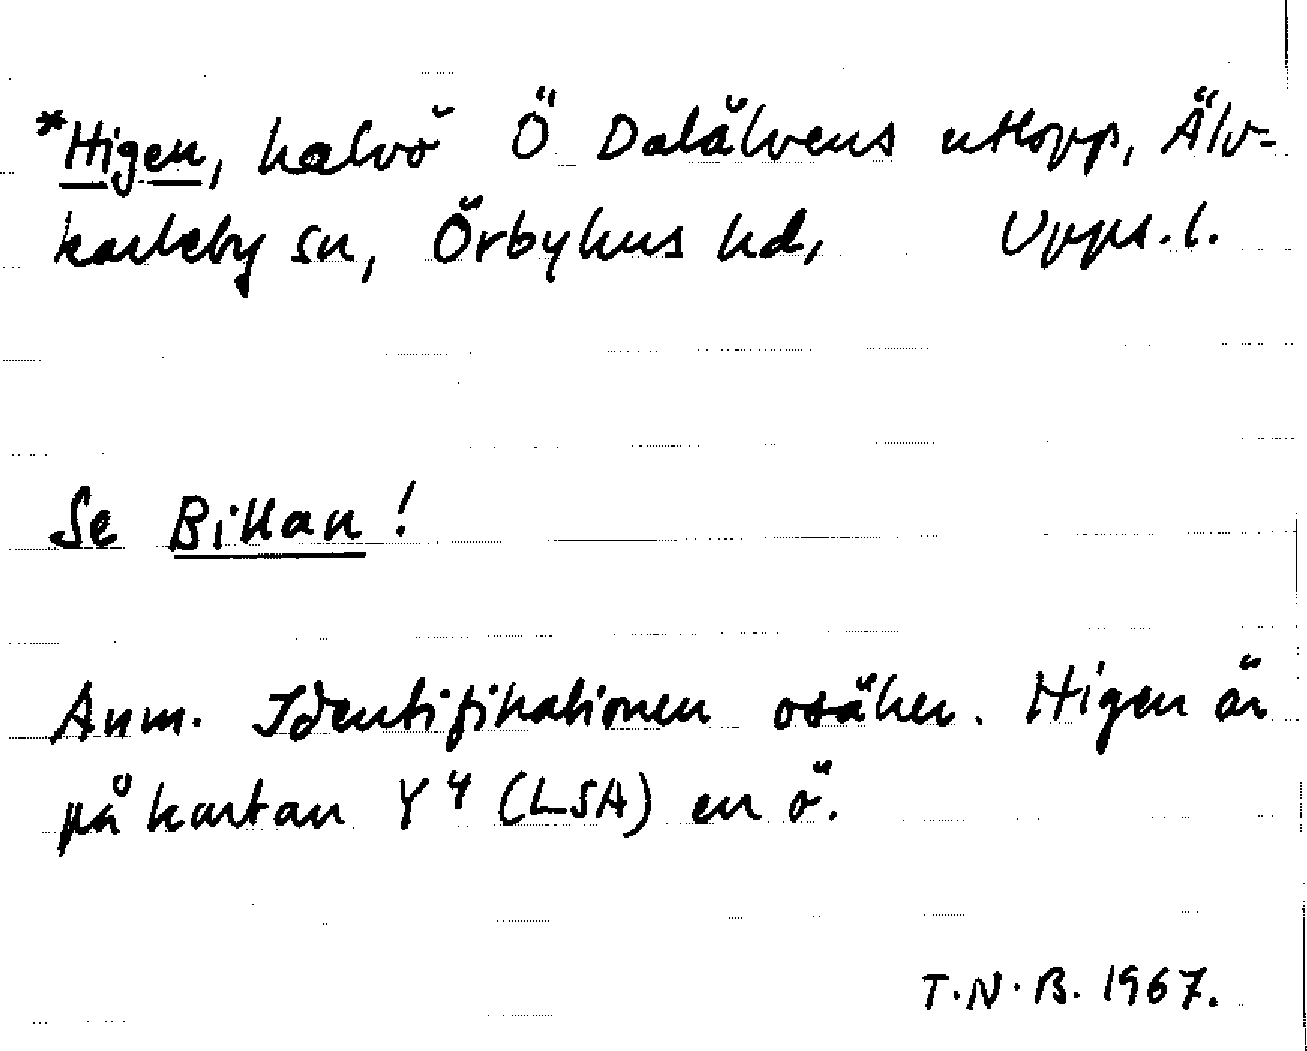 *Higen, halvö Ö Dalälvens utlopp, Älv-
karleby sn, Örbyhus hd, Upps.l.
Se Billan!
Anm. Identifikationen osäker. Higen är
på kartan Y4 (LSA) en ö.
T.N.B. 1967.